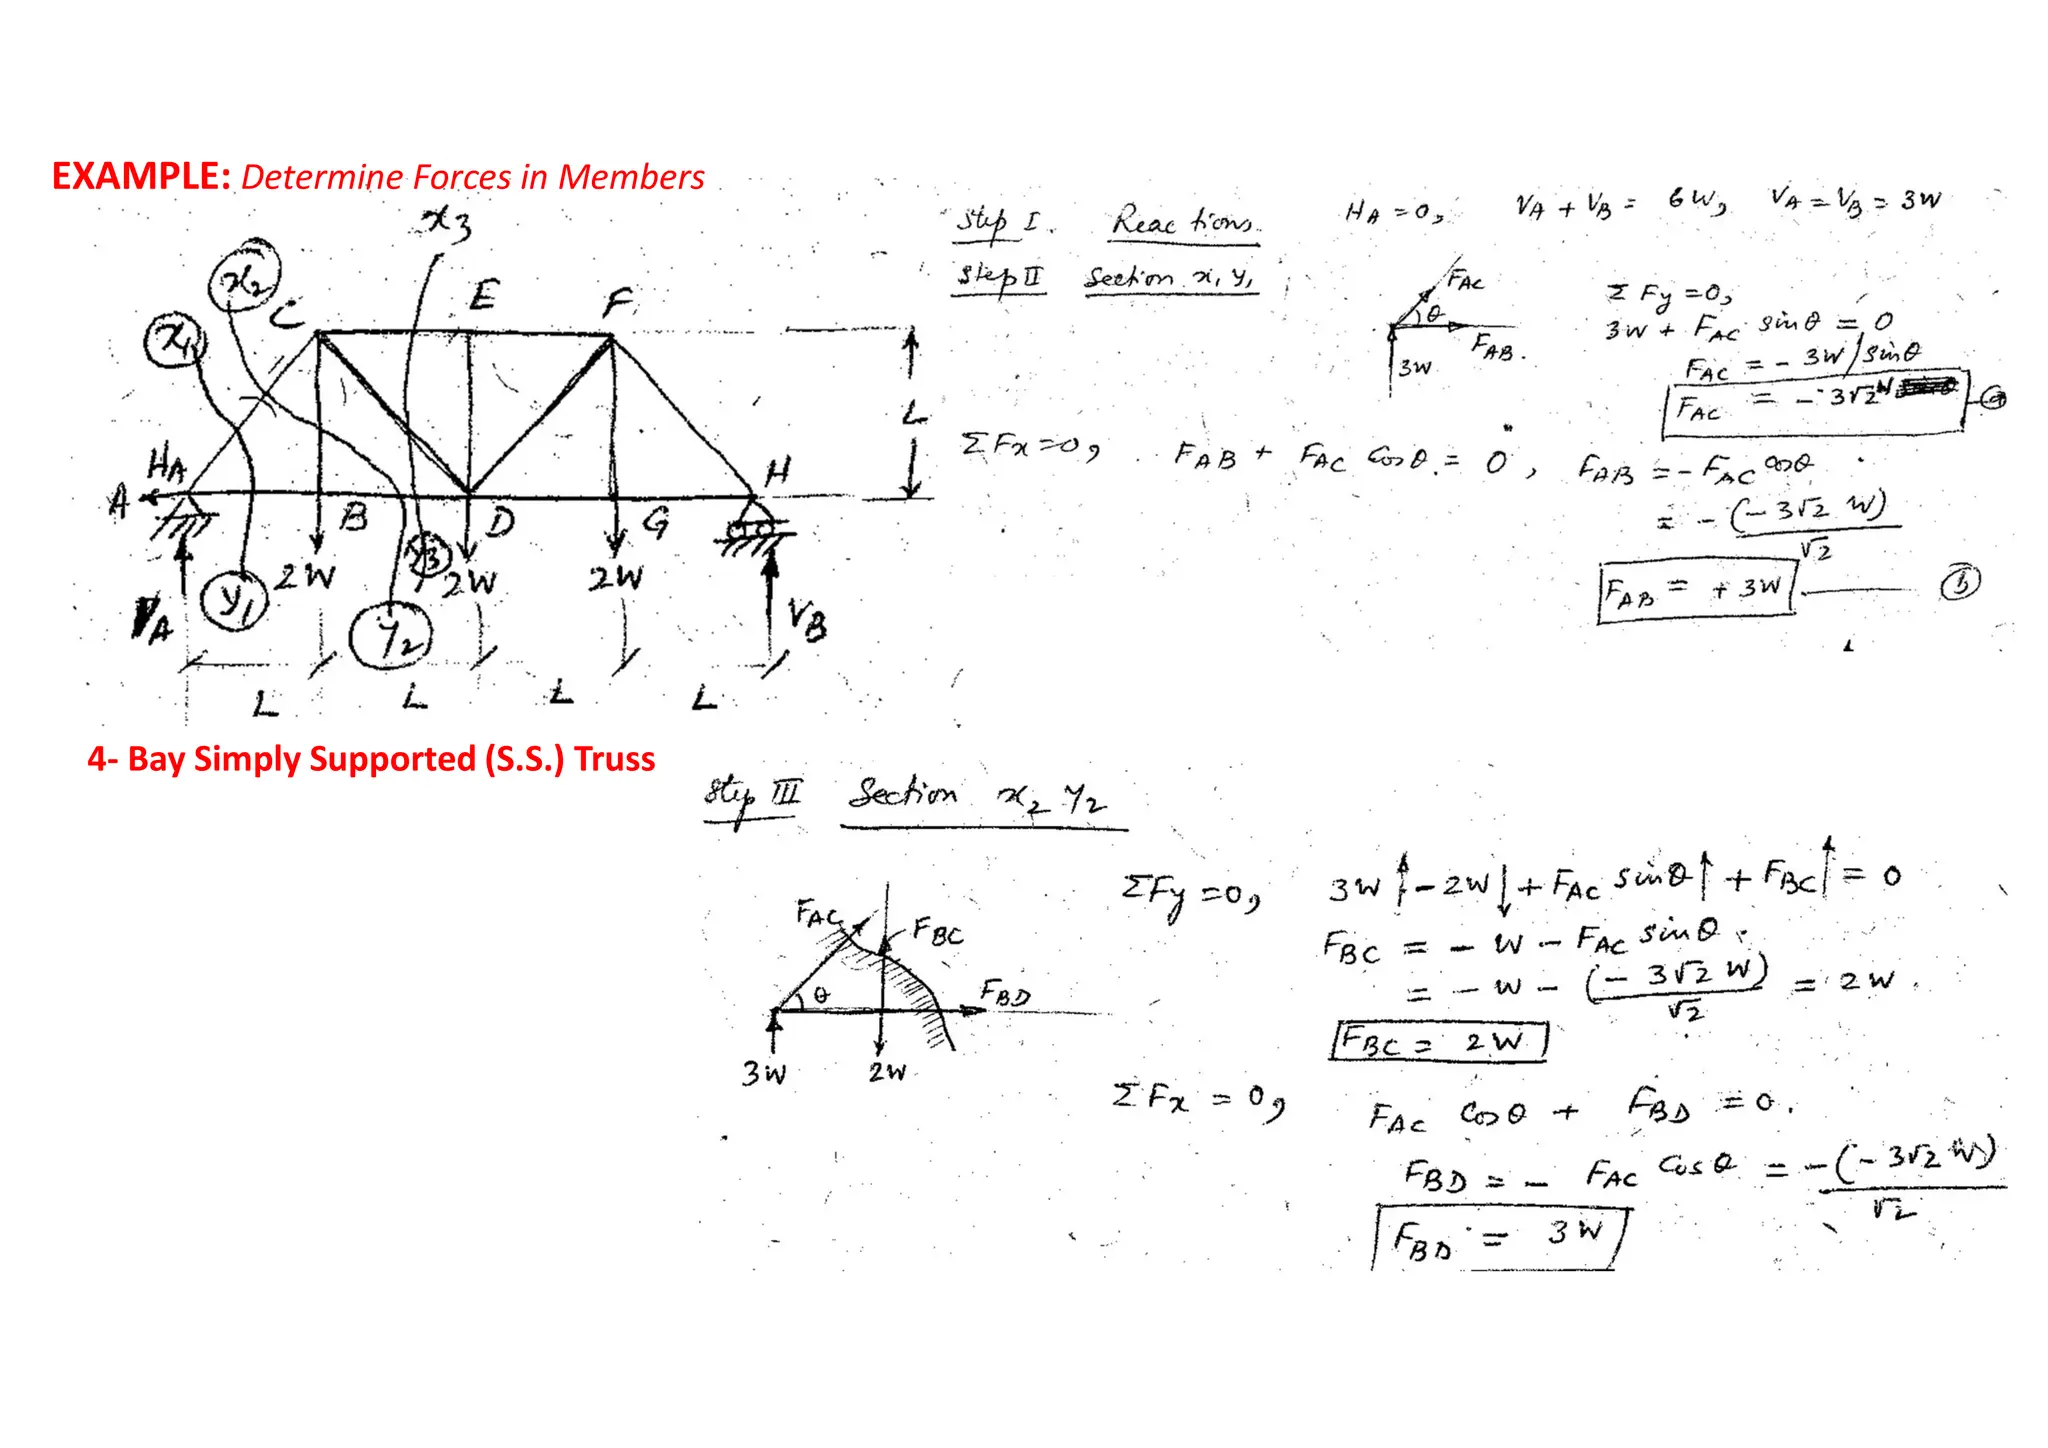 EXAMPLE: Determine Forces in Members
x3
x2
x1
C
E
F
L
HA
A
B
D
G
H
2W
y3
2W
2W
VA
y1
y2
VB
L
L
L
L
4- Bay Simply Supported (S.S.) Truss
Step I. Reactions. HA = 0, VA + VB = 6W, VA = VB = 3W
Step II Section x, y,
FAC
θ
FAB.
3W
Σ Fy = 0,
3W + FAC sinθ = 0
FAC = - 3W/sinθ
FAC = - 3√2 W
ΣFx = 0, FAB + FAC Cosθ = 0, FAB = - FAC cosθ
= - (- 3√2 W)
√2
FAB = + 3W (b)
Step III Section x2 y2
FAC
FBC
θ
FBD
3W
2W
ΣFy = 0, 3W↑ - 2W↓ + FAC sinθ↑ + FBC↑ = 0
FBC = - W - FAC sinθ.
= - W - (- 3√2 W) = 2W.
√2
FBC = 2W
ΣFx = 0, FAC Cosθ + FBD = 0.
FBD = - FAC Cosθ = - (- 3√2 W)
√2
FBD = 3W